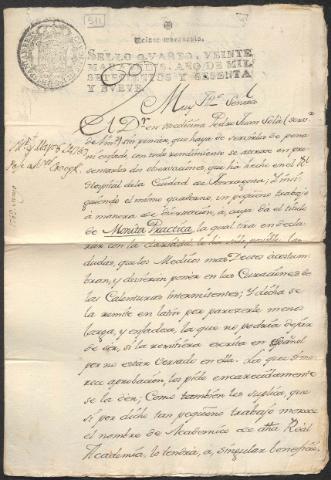 511
Veinte maravedis.
SELLO QVARTO, VEINTE
MARAVEDIS, AÑO DE MIL
SETECIENTOS Y SESENTA
Y NVEVE.
Muy Ill.e Señor
El Dr. en Medicina Pedro Juan Solá (
sin que haya de servirla de pena
ni enfado, con todo rendimiento se atreve en pre
sentarles dos observaciones, que ha hecho en el Rl
Hospital de la Ciudad de Tarragona, Y inci
quiendo el mismo quaderno, un pequeño trabajo
a manera de dicertación, a, cuya dà el titulo
de Monita Practica, la qual tira en decla
rar con la claridad le ha sido posible, las
dudas, que los Medicos mas Doctos acostum
bran, y deverian poner en las Curaciones de
las Calenturas Intermitentes; Y dicha se
la remite en latin por parecerle menos
larga, y enfadosa, la que no podria dexar
de ser, si la remitiera escrita en Español
por no estar versado en ella. La que si me
rece aprobacion, les pide encarecidamente
se la den, Como tambien les suplica, que
si por dicho tan pequeño trabajo merece
el nombre de Academico de dha Real
Academia, lo tendria, a, singular beneficio,